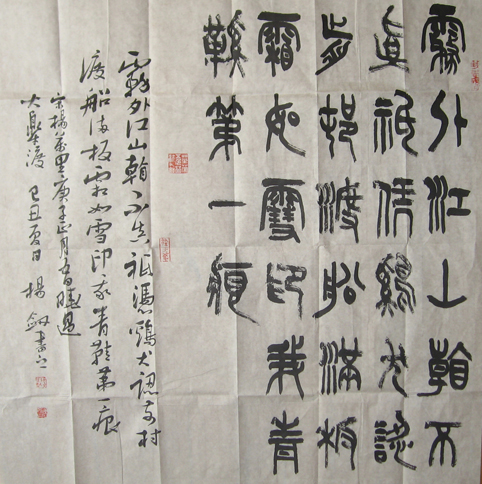 霧外江山翰不
真祇凭鷄犬認
前邨渡船滿板
霜如雪印我青
鞵第一痕
霧外江山翰不真祗憑鷄犬認前村
渡船滿板霜如雪印我青鞵第一痕
宋楊萬里庚子正月五日曉過
大皋渡 己丑夏日 楊劍書